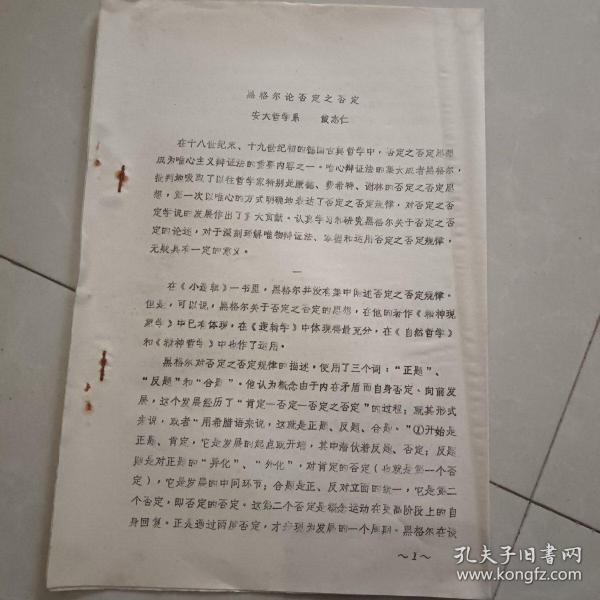 黑格尔论否定之否定
安大哲学系 戴志仁
在十八世纪末、十九世纪初的德国古典哲学中，否定之否定思想
成为唯心主义辩证法的重要内容之一。唯心辩证法的集大成者黑格尔，
批判地吸取了以往哲学家特别是康德、费希特、谢林的否定之否定思
想，第一次以唯心的方式明确地表达了否定之否定规律，对否定之否
定学说的发展作出了大贡献。认真学习和研究黑格尔关于否定之否
定的论述，对于深刻理解唯物辩证法、掌握和运用否定之否定规律，
无疑具有一定的意义。
一
在《小逻辑》一书里，黑格尔并没有集中阐述否定之否定规律。
但是，可以说，黑格尔关于否定之否定的思想，在他的著作《精神现
象学》中已有体现，在《逻辑学》中体现得最充分，在《自然哲学》
和《精神哲学》中也作了运用。
黑格尔对否定之否定规律的描述，使用了三个词：“正题”、
“反题”和“合题”。他认为概念由于内在矛盾而自身否定、向前发
展，这个发展经历了“肯定—否定—否定之否定”的过程；就其形式
来说，或者“用希腊语来说，这就是正题、反题、合题。”①开始是
正题、肯定，它是发展的起点或开端，其中潜伏着反题、否定；反题
则是对正题的“异化”、“外化”，对肯定的否定（也就是第一个否
定），它是发展的中间环节；合题是正、反对立面的统一，它是第二
个否定，即否定的否定。这第二个否定是概念运动在更高阶段上的自
身回复。正是通过两度否定，才表现为发展的一个周期。黑格尔在谈
～1～
孔夫子旧书网
www.kongfz.com